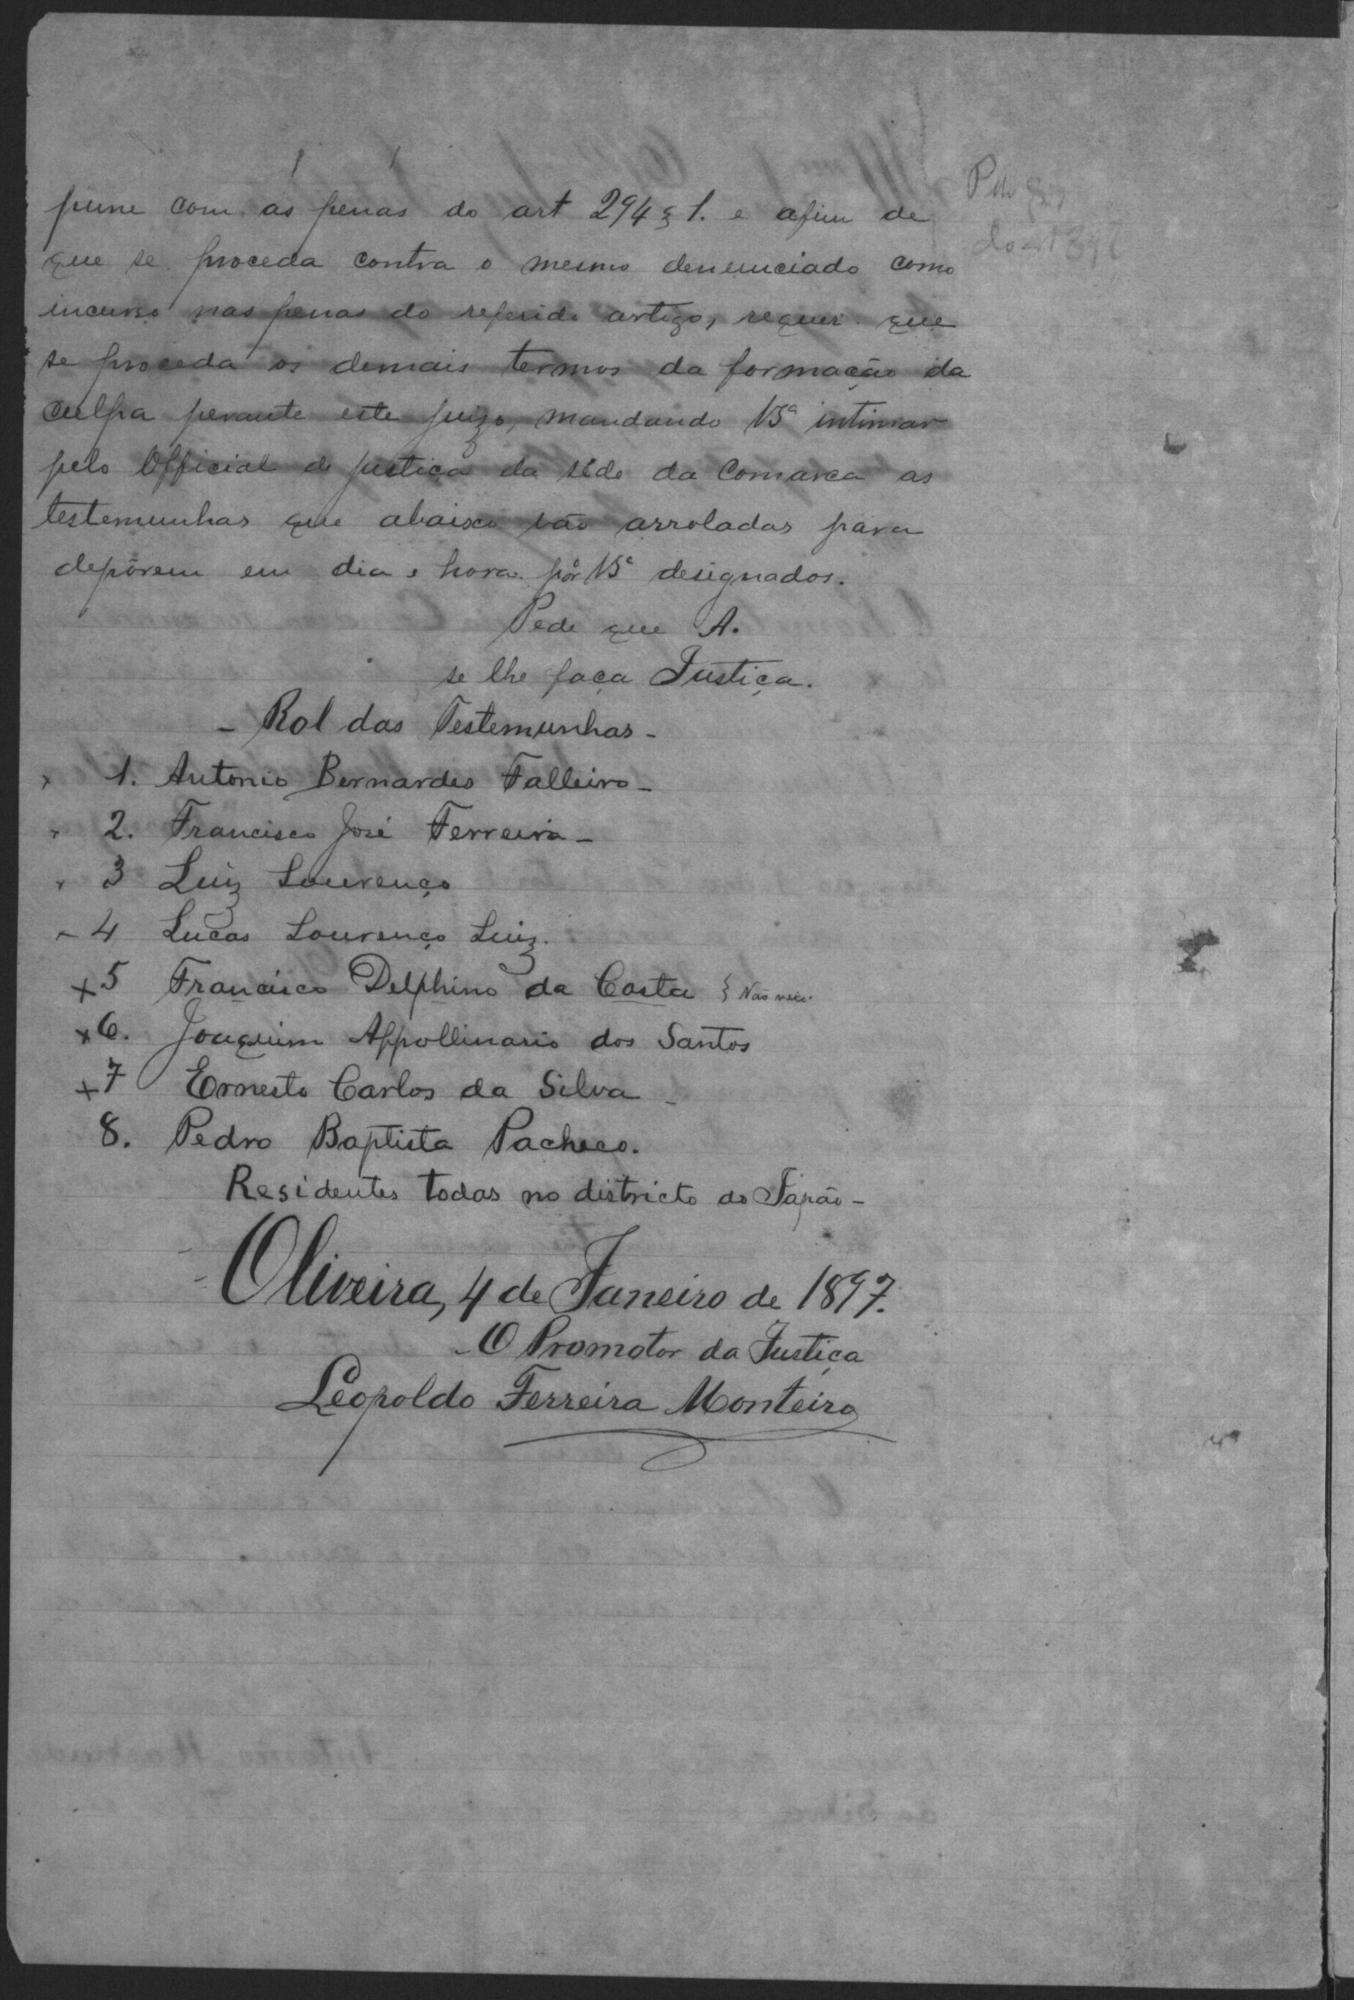 pune com as penas do art 294 § 1. e afim de
que se proceda contra o mesmo denunciado como
incurso nas penas do referido artigo, requer que
se proceda os demais termos da formação da
culpa perante este juizo, mandando Vsª intimar
pelo Official de justiça da séde da Comarca as
testemunhas que abaixo vão arroladas para
depôrem em dia e hora por Vsª designados.
Pede que A.
se lhe faça Justiça.
- Rol das Testemunhas -
x 1. Antonio Bernardes Falleiro -
x 2. Francisco José Ferreira -
x 3 Luiz Lourenço
- 4 Lucas Lourenço Luiz.
x 5 Francisco Delphino da Costa { Não
x 6. Joaquim Appollinario dos Santos
x 7 Ernesto Carlos da Silva -
8. Pedro Baptista Pacheco.
Residentes todas no districto do Japão -
Oliveira, 4 de Janeiro de 1897.
O Promotor da Justiça
Leopoldo Ferreira Monteiro